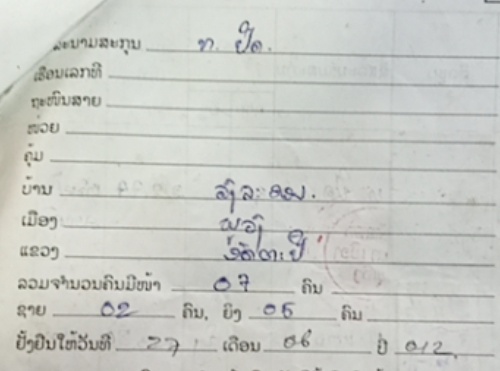 ະນາມສະກຸນ ທ. ປຶດ.
ເຮືອນເລກທີ
ຖະໜົນສາຍ
ໜ່ວຍ
ຄຸ້ມ
ບ້ານ
ເມືອງ ພູວົງ
ແຂວງ ອັດຕະປື
ລວມຈຳນວນຄົນມີໜ້າ 07 ຄົນ
ຊາຍ 02 ຄົນ, ຍິງ 05 ຄົນ
ຢັ້ງຢືນໃຫ້ວັນທີ 27 ເດືອນ 06 ປີ 012